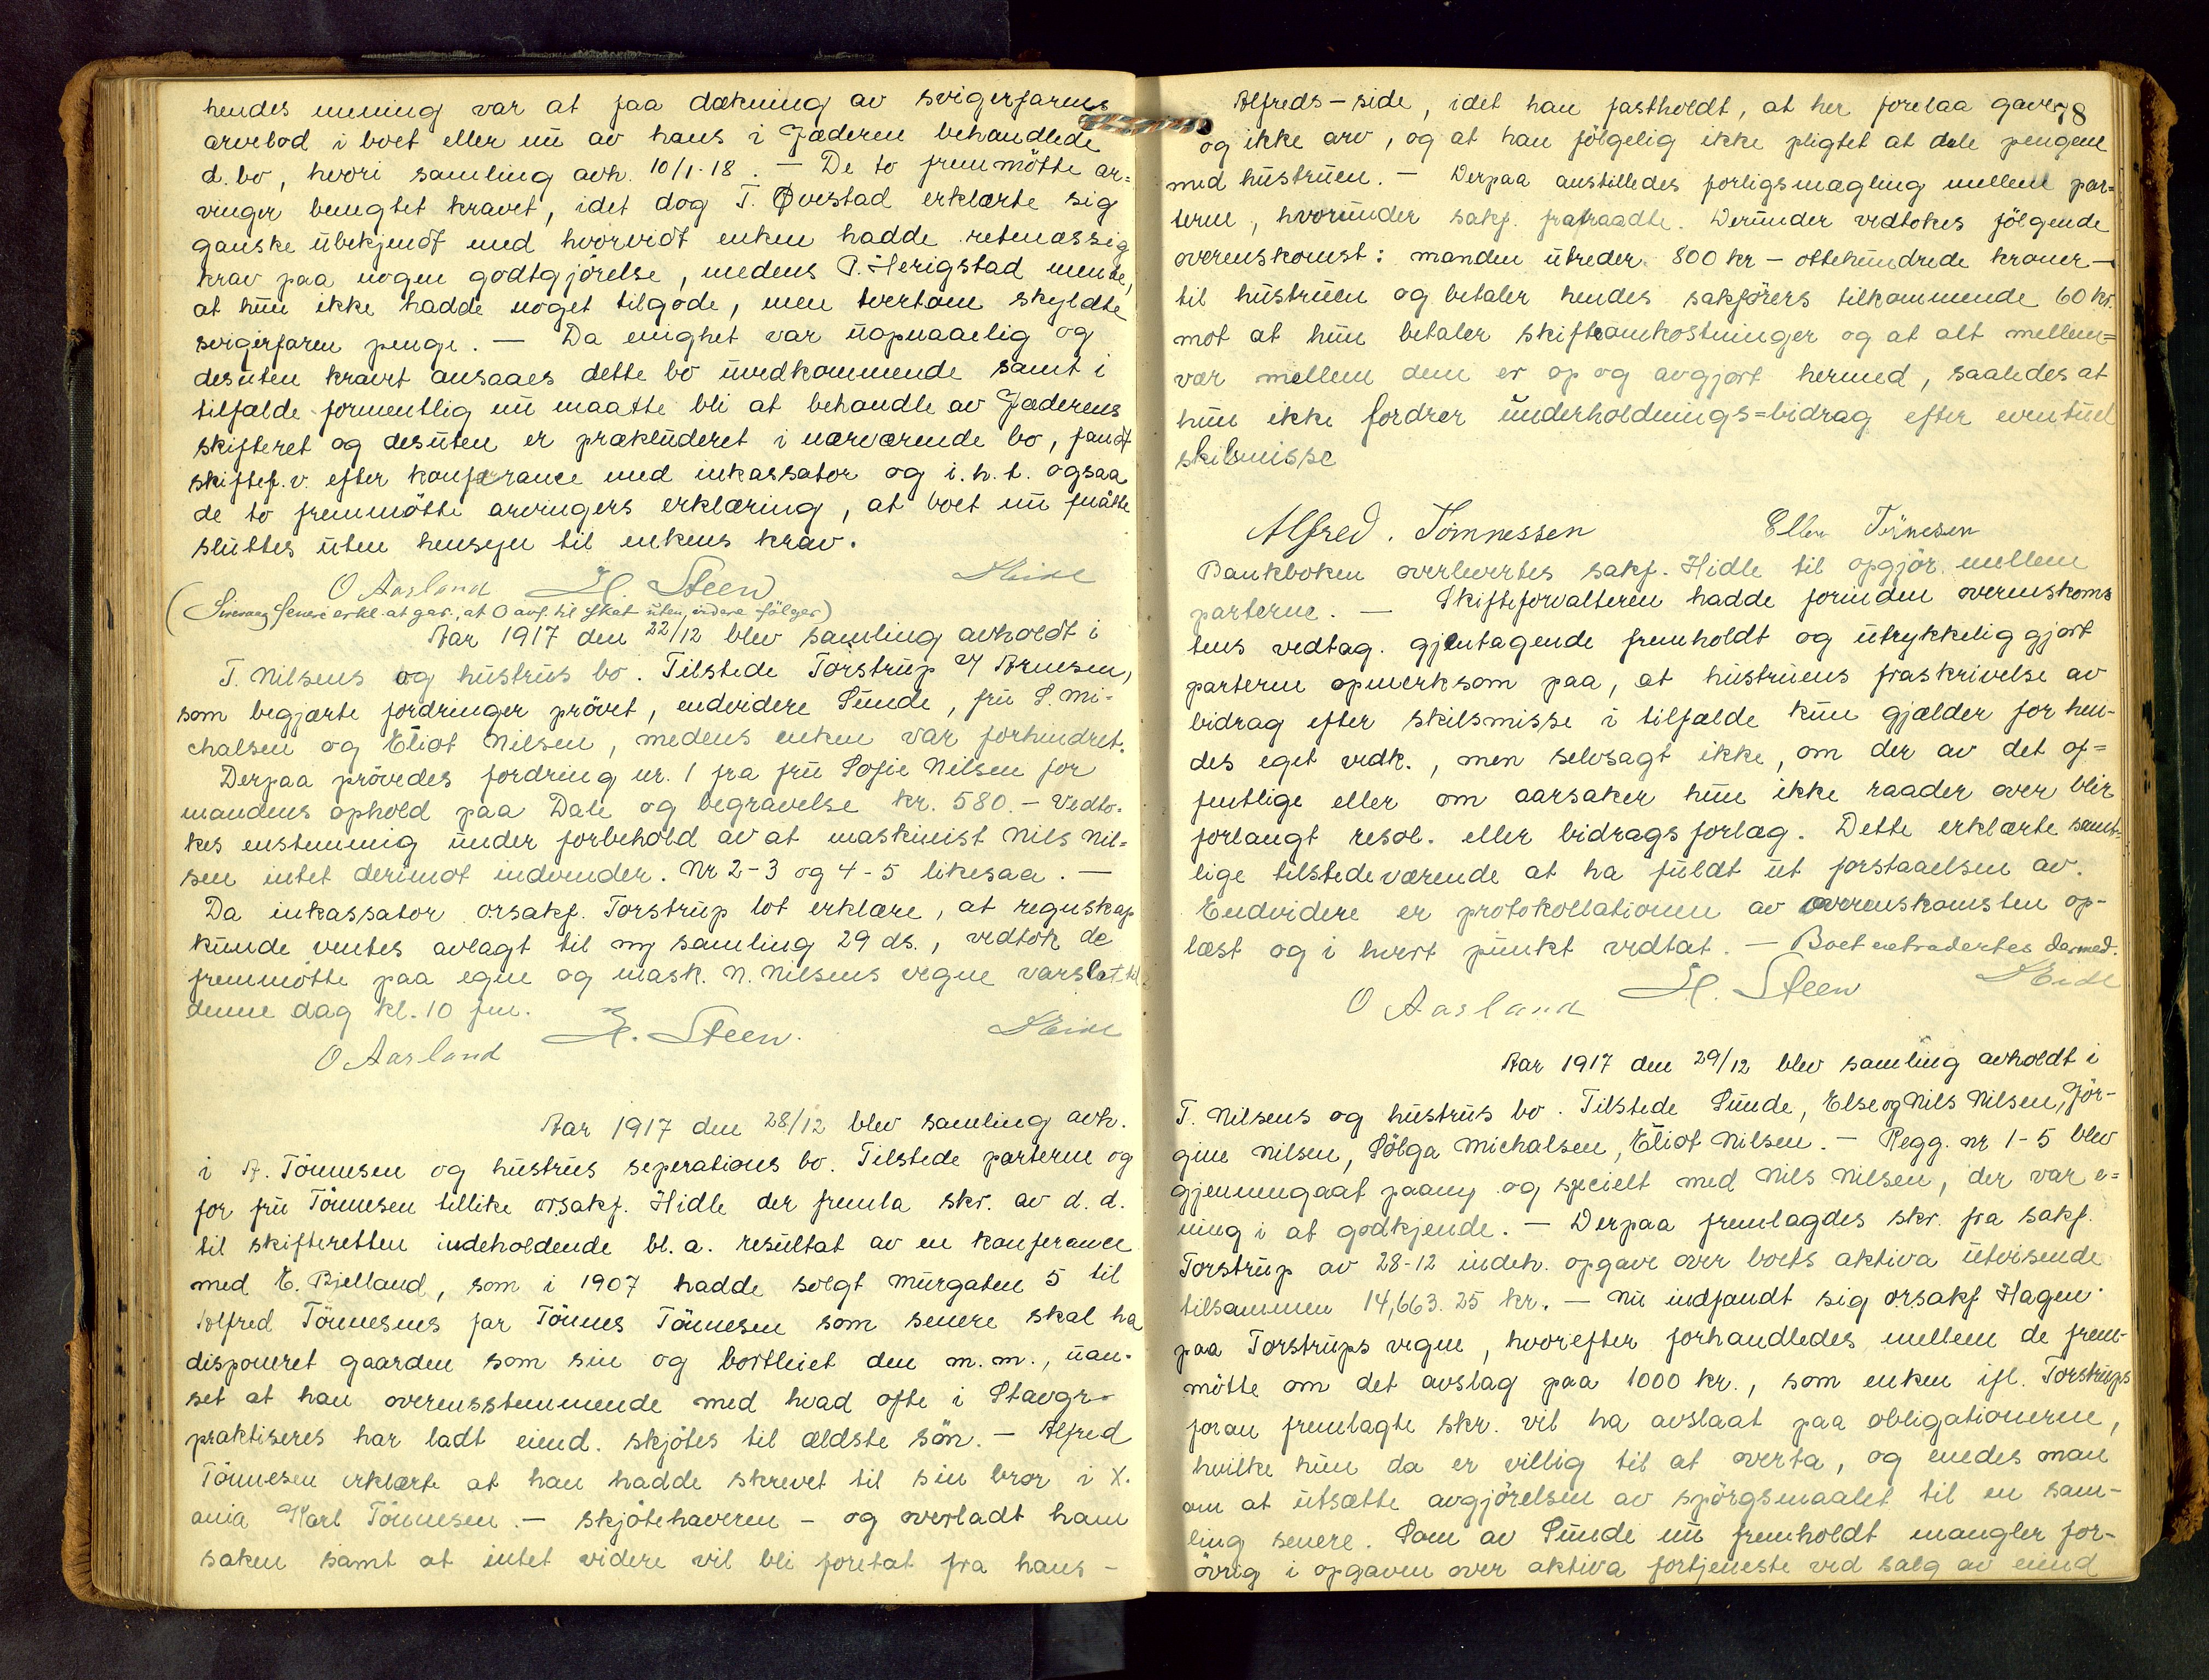 hendes mening var at faa dækning av svigerfarens
arvelod i boet eller nu av hans i Jæderen behandlede
d. bo, hvori samling avh. 10/1-18. — De to fremmötte ar=
vinger benegtet kravet, idet dog T. Øvestad erklærte sig
ganske ubekjendt med hvorvidt enken hadde retmæssig
krav paa nogen godtgjörelse, medens P. Herigstad mente,
at hun ikke hadde noget tilgode, men tvertom skyldte
svigerfaren penge. — Da enighet var uopnaaelig og
desuten kravet ansaaes dette bo uvedkommende samt i
tilfælde formentlig nu maatte bli at behandle av Jæderens
skifteret og desuten er prækluderet i nærværende bo, fandt
skiftef.v. efter konferance med inkassator og i.h.t. ogsaa
de to fremmötte arvingers erklæring, at boet nu maatte
sluttes uten hensyn til enkens krav.
O Aarland H. Steen
( senere erkl. at gav. at O avg. til skat uten videre fölger)
Aar 1917 den 22/12 blev samling avholdt i
T. Nilsens og hustrus bo. Tilstede Torstrup v/ Arnesen,
som begjærte fordringer prövet, endvidere Sunde, fru S. Mi-
chalsen og Eliot Nilsen, medens enken var forhindret.
Derpaa prövedes fordring nr. 1 fra fru Sofie Nilsen for
mandens ophold paa Dale og begravelse kr. 580.- Vedto-
kes enstemmig under forbehold av at maskinist Nils Nil=
sen intet derimot indvender. Nr 2-3 og 4-5 likesaa. —
Da inkassator orsakf. Torstrup lot erklære, at regnskap
kunde ventes avlagt til ny samling 29 ds., vedtok de
fremmötte paa egne og mask. N. Nilsens vegne varslet til
denne dag kl. 10 fm.
O Aarland H. Steen.
Aar 1917 den 28/12 blev samling avh.
i A. Tönnesen og hustrus seperations bo. Tilstede parterne og
for fru Tönnesen tillike orsakf. Hidle der fremla skr. av d.d.
til skifteretten indeholdende bl.a. resultat av en konferance
med E. Bjelland, som i 1907 hadde solgt Murgaten 5 til
Alfred Tönnesens far Tönnes Tönnesen som senere skal ha
disponeret gaarden som sin og bortleiet den m.m., uan-
set at han overensstemmende med hvad ofte i Stavgr.
praktiseres har ladt eiend. skjötes til ældste sön. — Alfred
Tönnesen erklærte at han hadde skrevet til sin bror i X.
ania Karl Tönnesen. — skjötehaveren — og overladt ham
saken samt at intet videre vil bli foretat fra hans -
78
Alfreds - side, idet han fastholdt, at her forelaa gave
og ikke arv, og at han fölgelig ikke pligtet at dele pengene
med hustruen. — Derpaa anstilledes forligsmægling mellem par=
terne, hvorunder sakf. fratraadte. Derunder vedtokes fölgende
overenskomst: manden utreder 800 kr - ottehundrede kroner -
til hustruen og betaler hendes sakförers tilkommende 60 kr.
mot at hun betaler skifteomkostninger og at alt mellem=
vær mellem dem er op og avgjort hermed, saaledes at
hun ikke fordrer underholdnings=bidrag efter eventuel
skilsmisse
Alfred. Tönnessen Ellen Tönnesen
Bankboken overleveres sakf. Hidle til opgjör mellem
parterne. — Skifteforvalteren hadde forinden overenskoms
tens vedtag. gjentagende fremholdt og utrykkelig gjort
parterne opmerksom paa, at hustruens fraskrivelse av
bidrag efter skilsmisse i tilfælde kun gjælder for hen-
des eget vedk., men selvsagt ikke, om der av det of=
fentlige eller om aarsaker hun ikke raader over blir
forlangt resol. eller bidragsforlæg. Dette erklærte samt-
lige tilstedeværende at ha fuldt ut forstaaelsen av.
Endvidere er protokollationen av overenskomsten op-
læst og i hvert punkt vedtat. — Boet extraderes dermed.
O Aarland H. Steen
Aar 1917 den 29/12 blev samling avholdt i
T. Nilsens og hustrus bo. Tilstede Sunde, Else og Nils Nilsen, Jör-
gine Nilsen, Sölga Michalsen, Eliot Nilsen. — Regg. nr 1-5 blev
gjennemgaat paany og specielt med Nils Nilsen, der var e=
ning i at godkjende. — Derpaa fremlagdes skr. fra sakf.
Torstrup av 28-12 indeh. opgave over boets aktiva utvisende
tilsammen 14,663.25 kr. — Nu indfandt sig orsakf Hagen
paa Torstrups vegne, hvorefter forhandledes mellem de frem-
mötte om det avslag paa 1000 kr., som enken ifl. Torstrups
foran fremlagte skr. vil ha avslaat paa obligationerne,
hvilke hun da er villig til at overta, og enedes man
om at utsætte avgjörelsen av spörgsmaalet til en sam-
ling senere. Som av Sunde nu fremholdt mangler for-
övrig i opgaven over aktiva fortjeneste ved salg av eiend